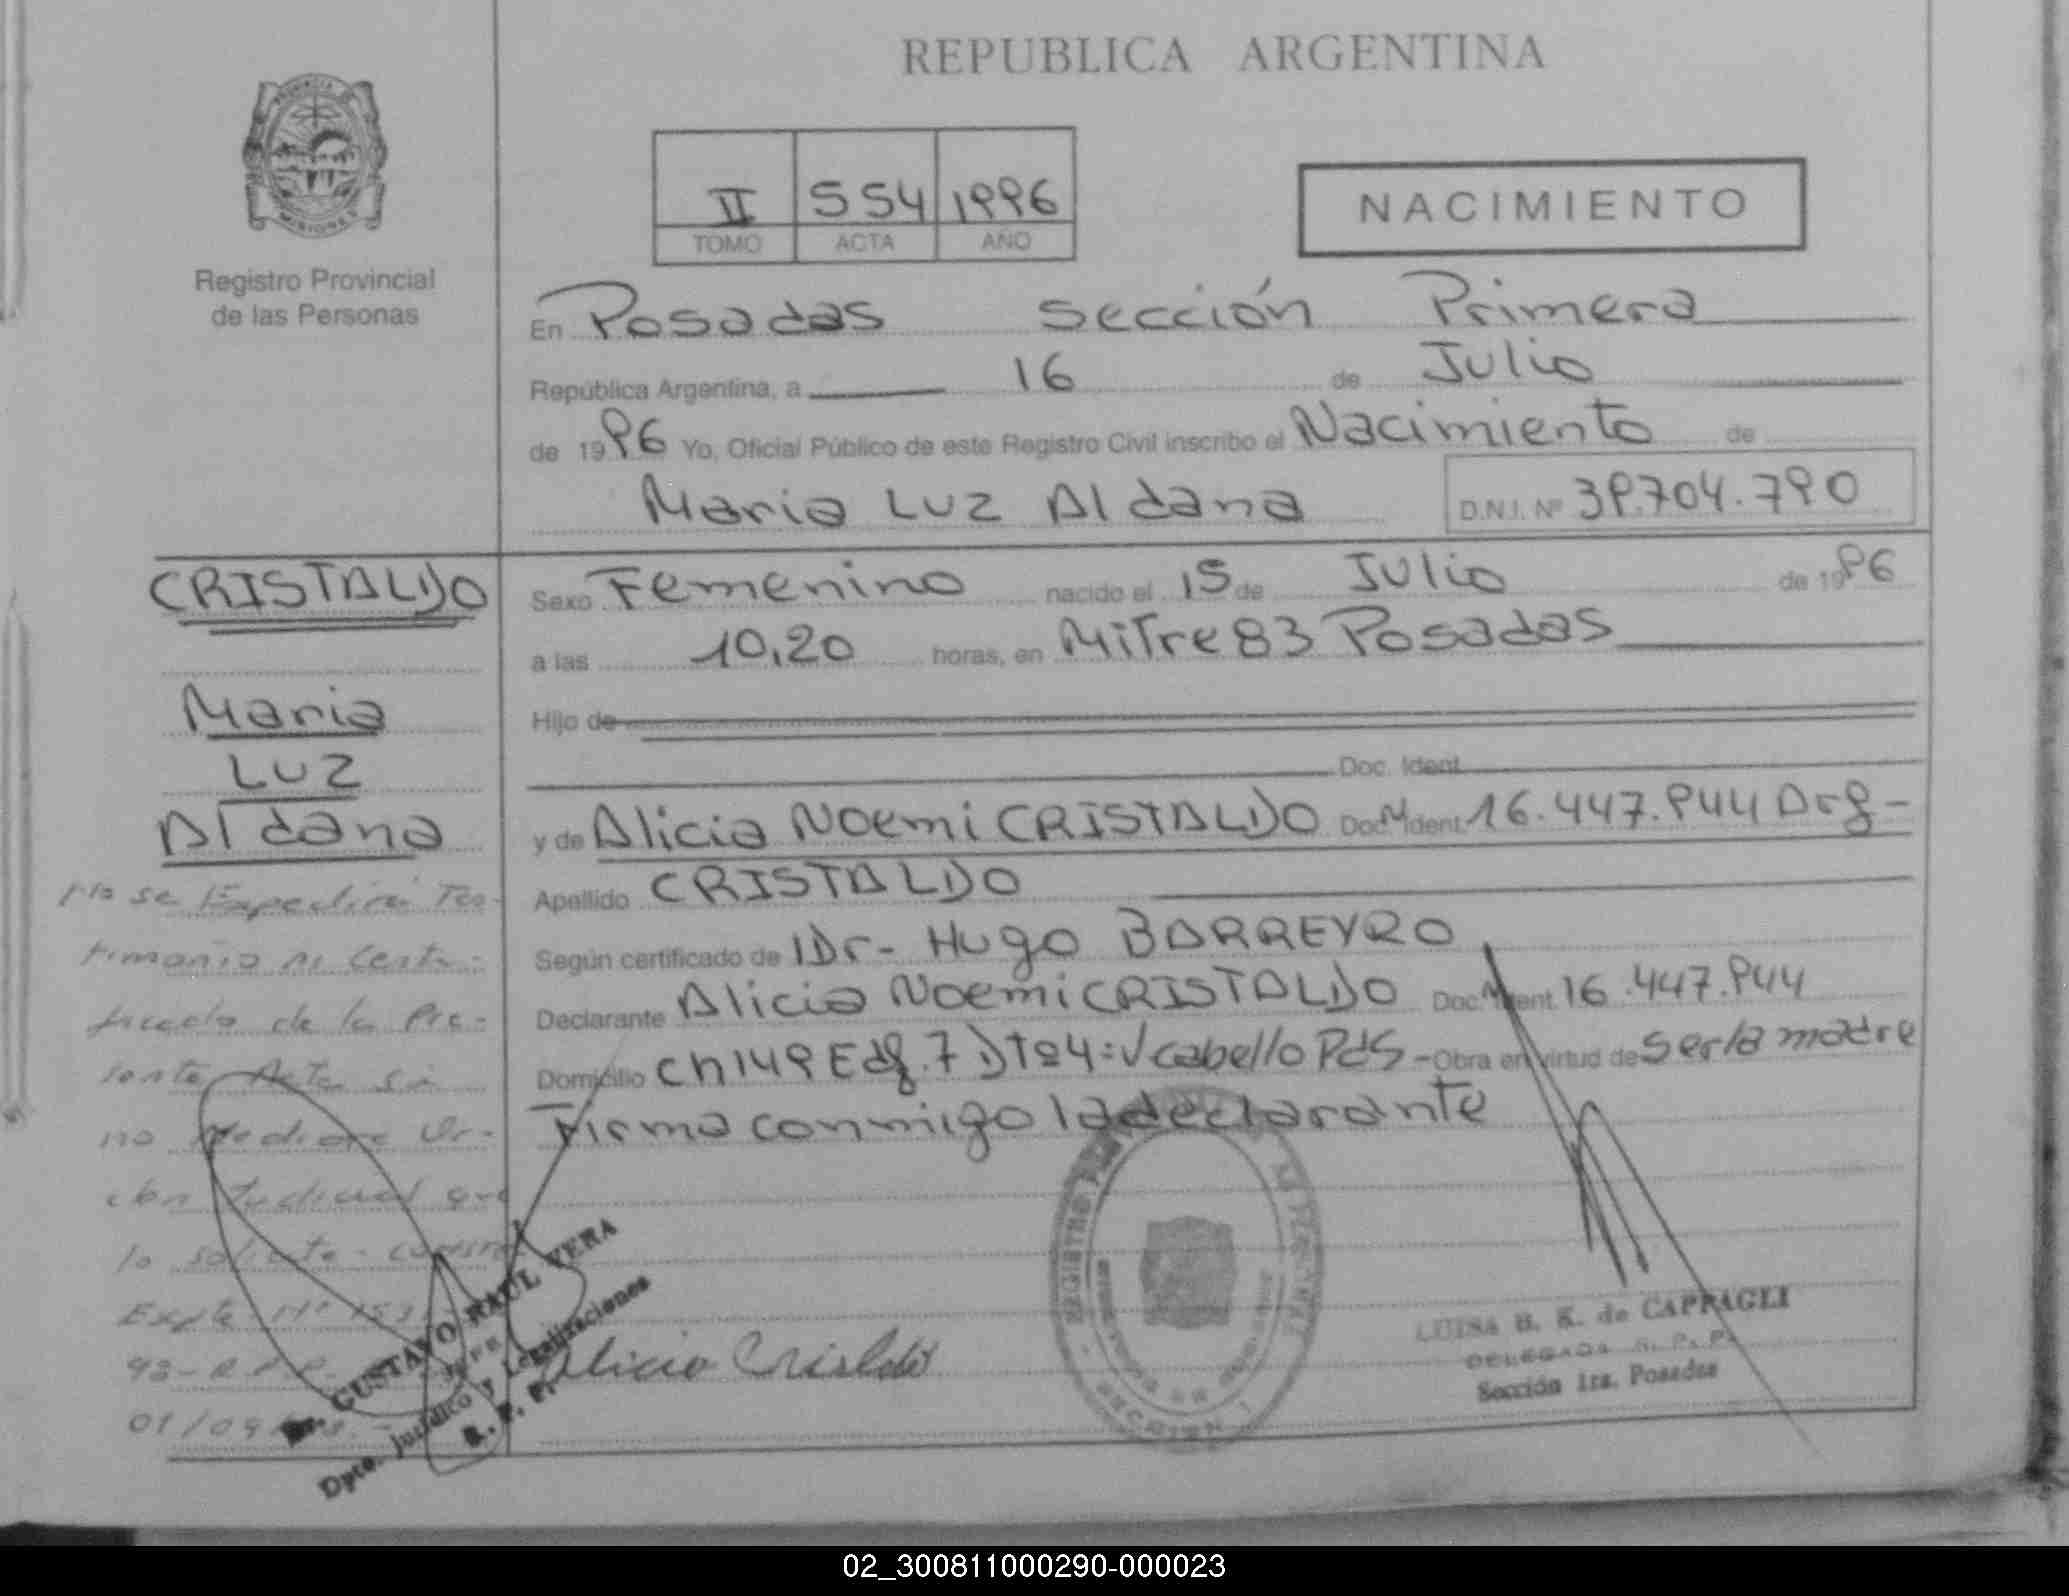 REPUBLICA ARGENTINA
PROVINCIA DE
MISIONES
Registro Provincial
de las Personas
II 554 1996
TOMO ACTA AÑO
NACIMIENTO
En Posadas sección Primera
República Argentina, a 16 de Julio
de 1996 Yo, Oficial Público de este Registro Civil inscribo el Nacimiento de
Maria Luz Aldana D.N.I. Nº 39.704.790
CRISTALDO
Maria
Luz
Aldana
Sexo Femenino nacido el 15 de Julio de 1996
a las 10,20 horas, en Mitre 83 Posadas
Hijo de
Doc. Ident.
y de Alicia Noemi CRISTALDO Doc. Ident. 16.447.944 Arg-
Apellido CRISTALDO
Según certificado de Dr- Hugo BARREYRO
Declarante Alicia Noemi CRISTALDO Doc. Ident. 16.447.944
Domicilio Ch149 Edf.7 Dtº4: Vcabello Pds - Obra en virtud de ser la madre
Firma conmigo la declarante
No se Expedira Tes-
timonio ni Certi-
ficado de la Pre-
sente Acta si
no mediare Or-
den Judicial que
lo solicite.
Expte Nº
98-R.P.P.
01/09
GUSTAVO RAUL VERA
JEFE
Dpto. Jurídico y Legalizaciones
R. P. P.
Alicia Cristaldo
LUISA B. K. de CAPPAGLI
DELEGADA R. P. P.
Sección 1ra. Posadas
02_300811000290-000023